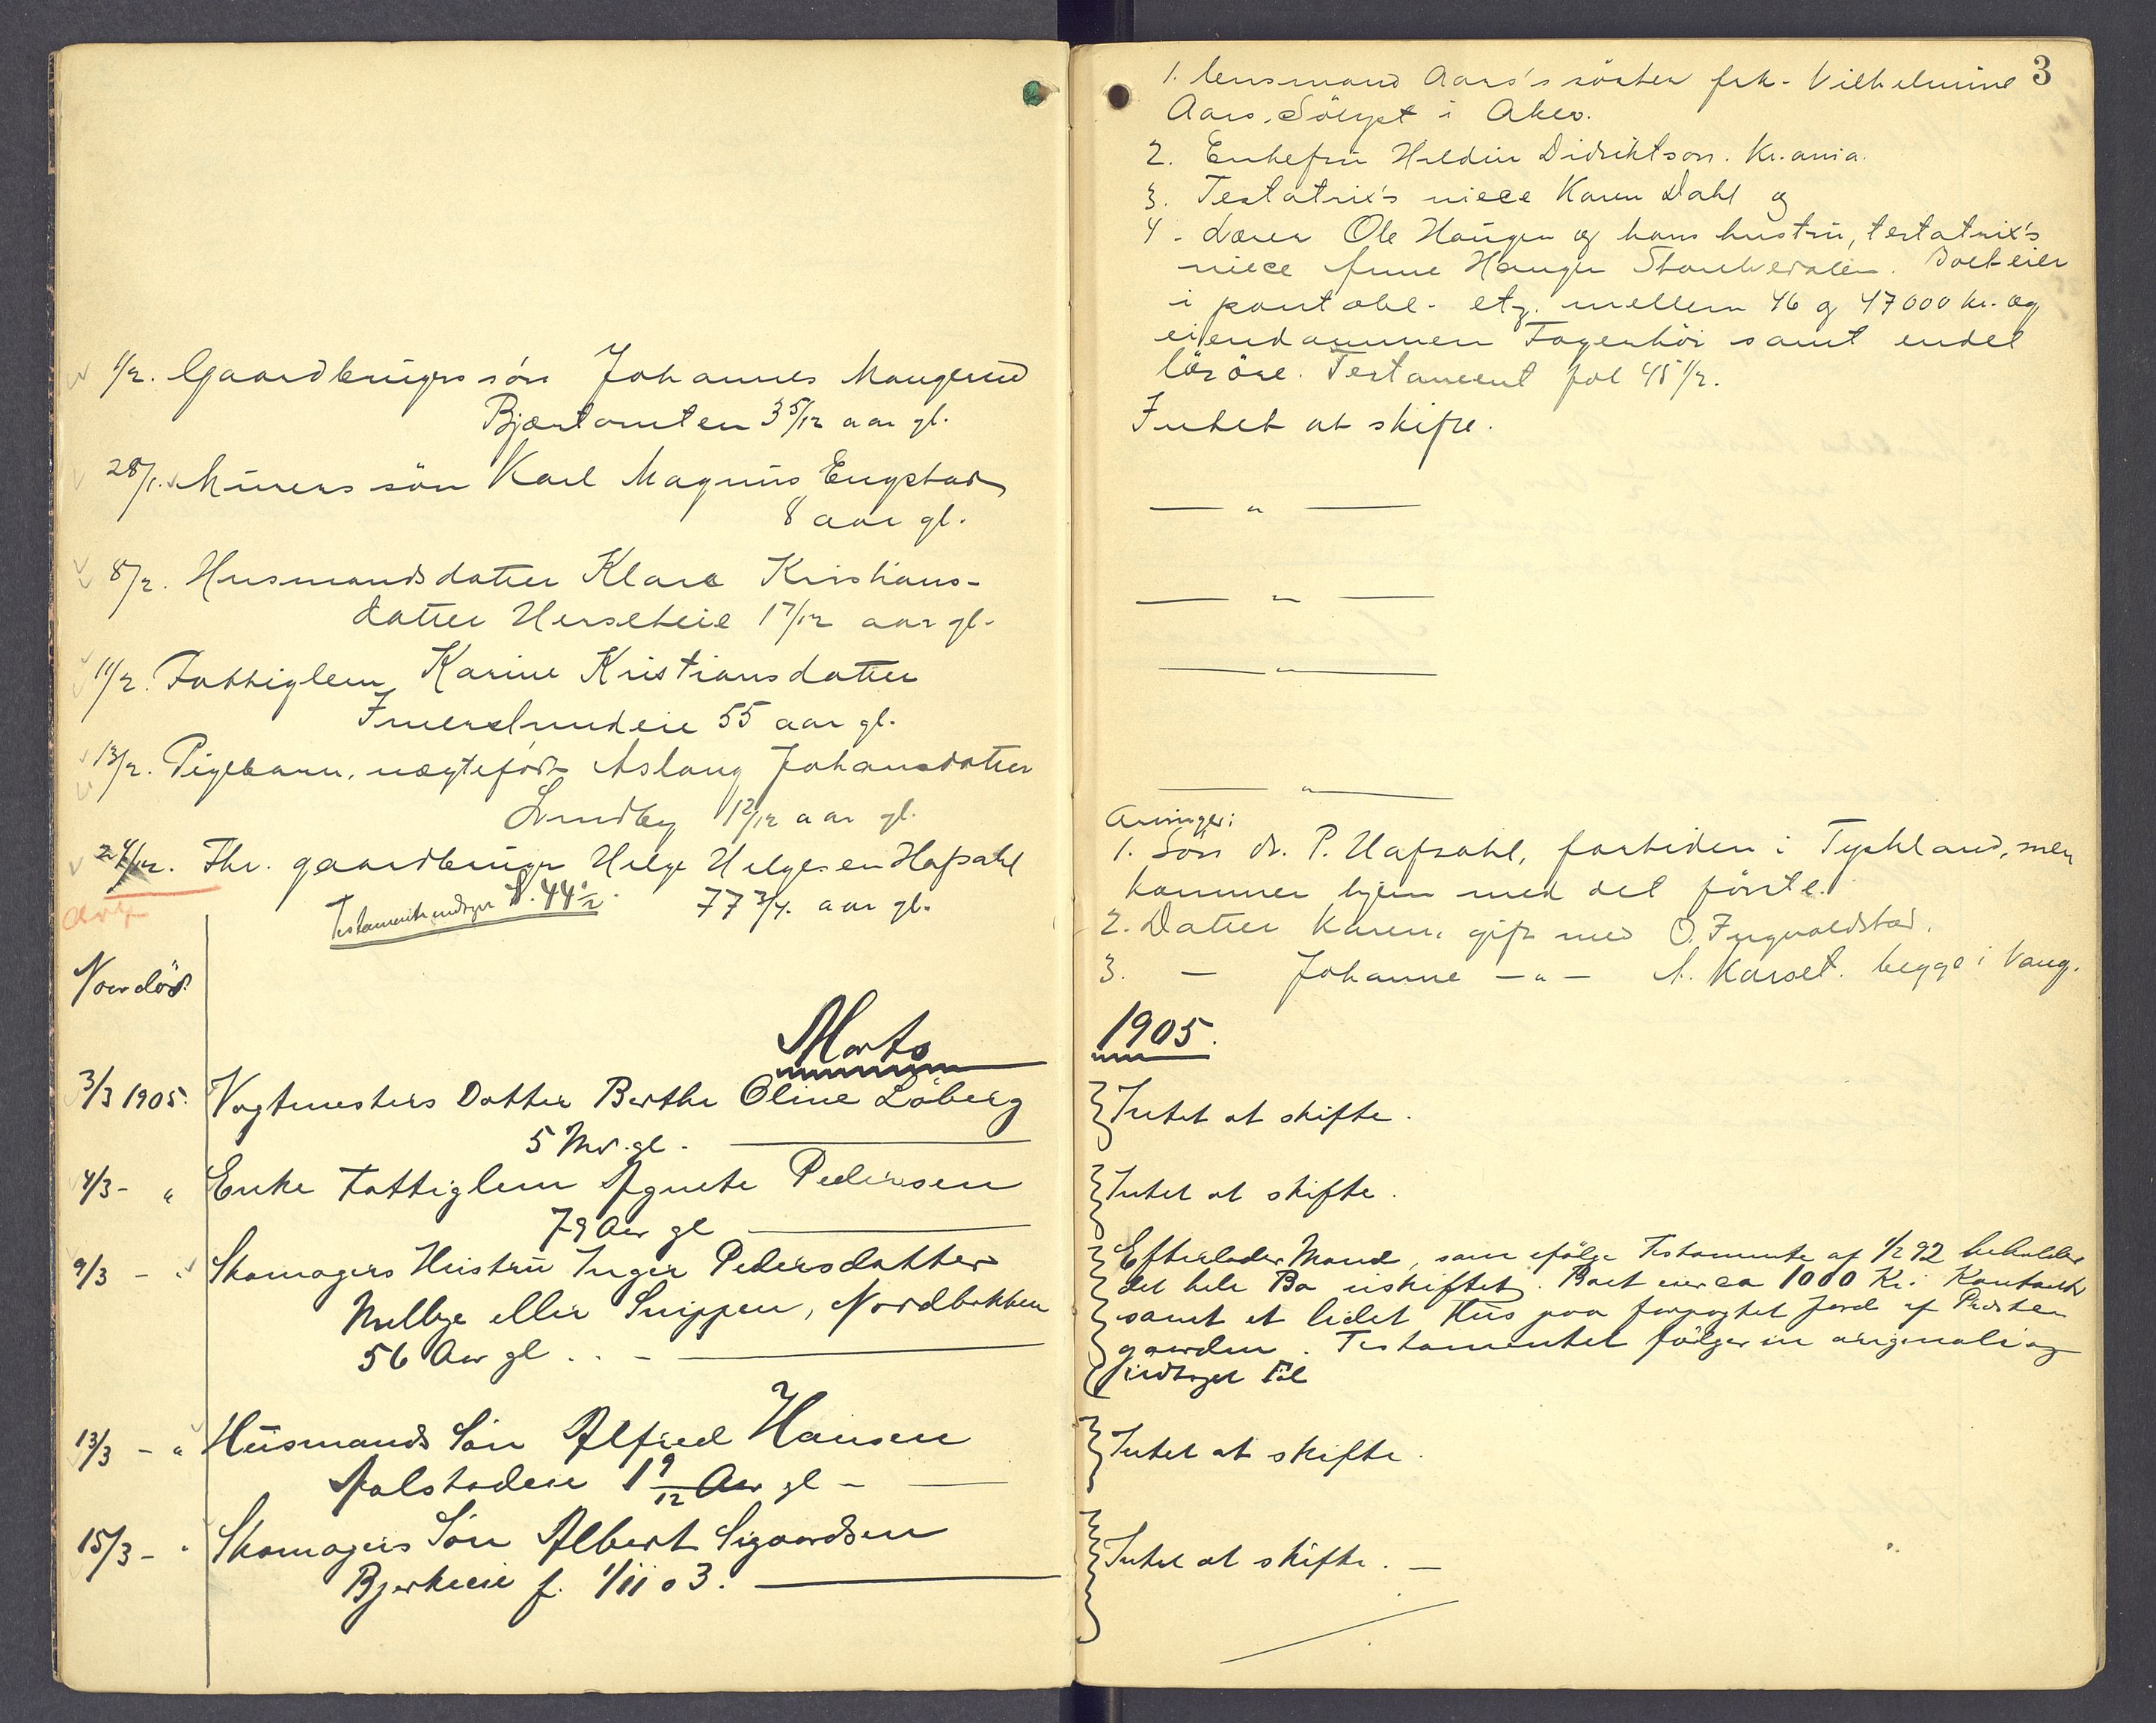 1/2. Gaardbrugers sön Johannes Maugerud
Bjærtomten 3 5/12 aar gl.
28/1. Murers sön Karl Magnus Engstad
8 aar gl.
8/2. Husmandsdatter Klara Kristians-
datter Herseteie 1 7/12 aar gl.
11/2. Fattiglem Karine Kristiansdatter
55 aar gl.
13/2. Pigebarn, uægteföd Aslaug Johansdatter
Lundby 1 2/12 aar gl.
24/2. Fhv. gaardbruger Helge Helgesen Hafsahl
77 3/4. aar gl.
Testamentsudtager S. 44 1/2.
Naar död.
Marts
3/3 1905. Vogtmesters Datter Berthe Oline Löberg
5 Mr. gl.
4/3 - " Enke Fattiglem Agnete Pedersen
79 Aar gl
9/3 - " Skomagers Hustru Inger Pedersdatter
Melbye eller Snippen, Nordbakken
56 Aar gl. . -
13/3 - " Husmands Sön Alfred Hansen
Aalstadeie 1 9/12 Aar gl -
15/3 - " Skomagers Sön Albert Sigvardsen
Bjerkeeie f. 1/11 03.
3
1. lensmand Aars's söster frk. Vilhelmine
Aars, Sölyst i Aker.
2. Enkefru Haldin Didriktson. Kr.ania.
3. Testatrix's niece Karen Dahl og
4. Lærer Ole Haugen og hans hustru, testatrix's
niece Anne Haugen Storelvedalen. Boet eier
i pantobl. etz. mellem 46 og 47000 kr. og
eiendommen Fagerhöi samt endel
lösöre. Testament fol 45 1/2.
Intet at skifte.
— " —
— " —
— " —
— " —
Arvinger:
1. Sön dr. P. Hafsahl, fortiden i Tyskland, men
kommer hjem med det förste.
2. Datter Karen, gift med O. Ingvaldstad.
3. — Johanne — " — A. Karset. begge i Vang.
1905.
Intet at skifte.
Intet at skifte.
Efterlader Mand, som ifölge Testamente af 1/2 92 beholder
det hele Bo uskiftet. Boet eier ca 1000 Kr. i Kontanter
samt et lidet Hus paa forpagtet Jord af Præste
gaarden. Testamentet fölger in originali og
indtaget Fol
Intet at skifte.
Intet at skifte. —